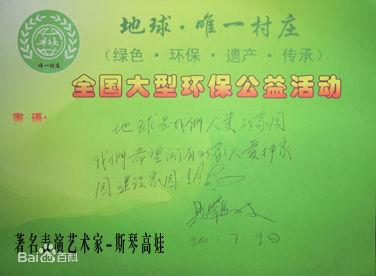 地球·唯一村庄
(绿色·环保·遗产·传承)
唯一村庄
全国大型环保公益活动
寄语:
地球是我们人类的家园
我们希望所有的家人爱护家
园建设家园!
7.9日
著名表演艺术家-斯琴高娃
Bai百科